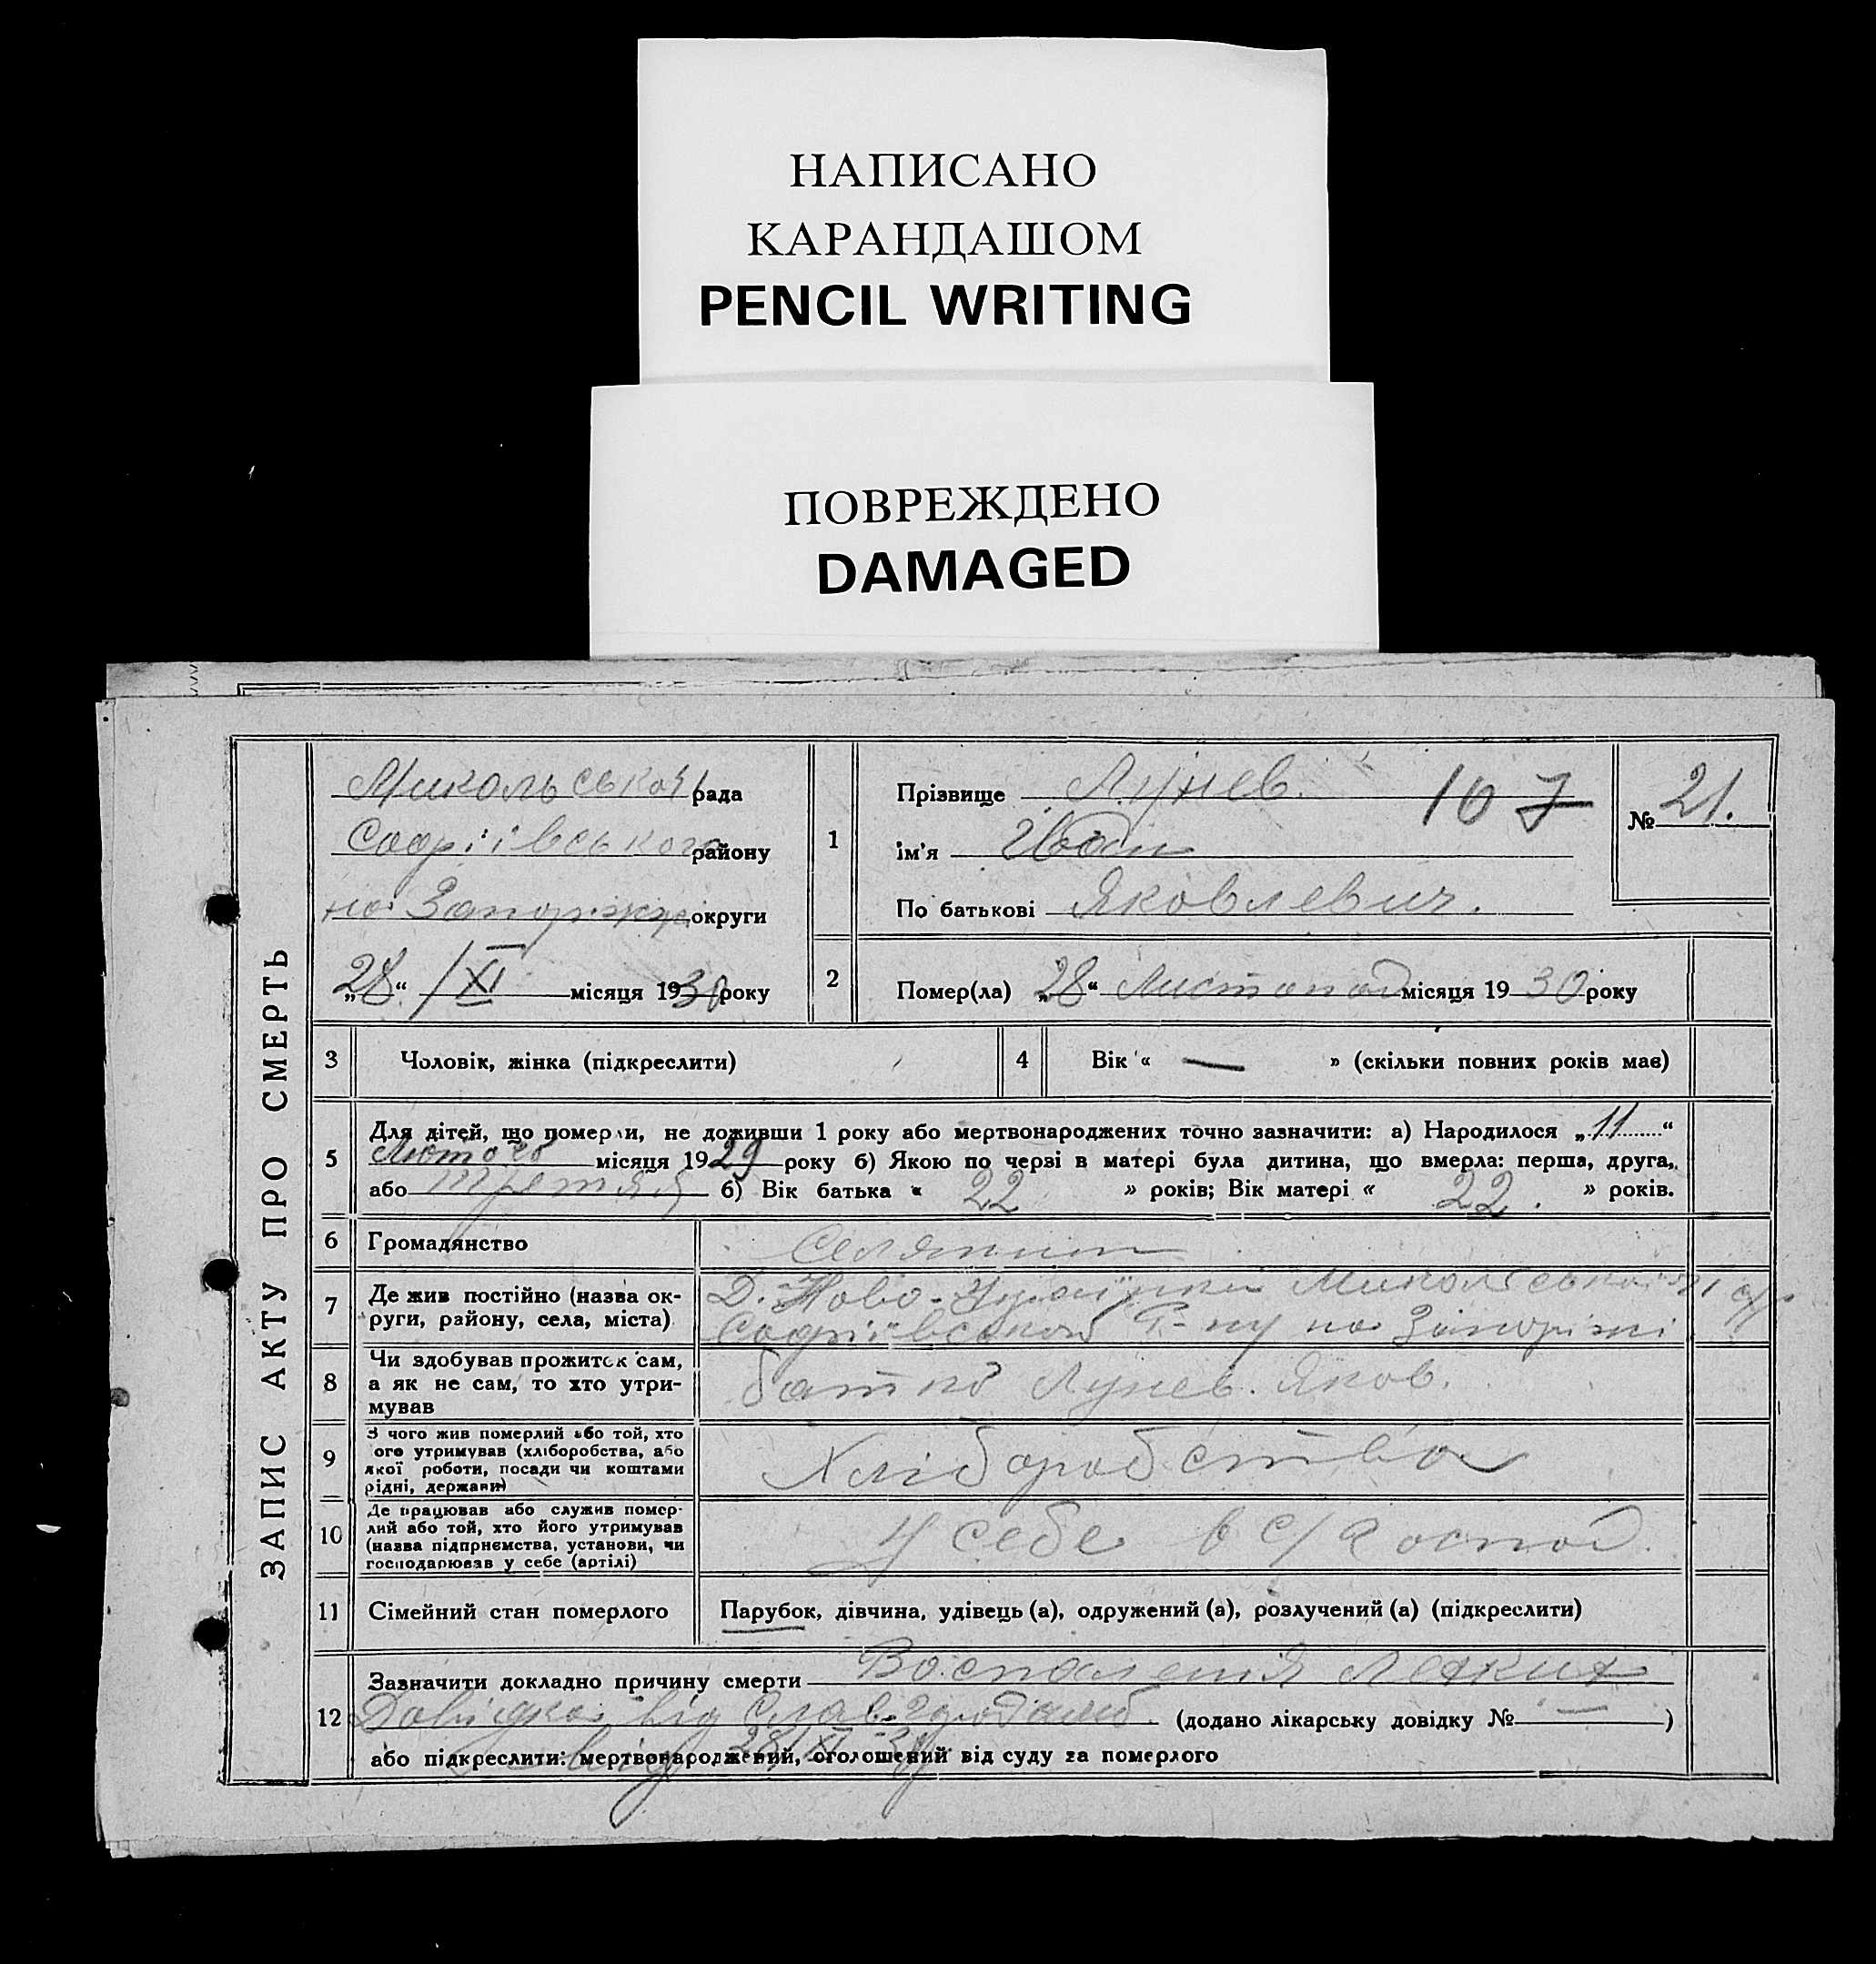 НАПИСАНО
КАРАНДАШОМ
PENCIL WRITING
ПОВРЕЖДЕНО
DAMAGED
ЗАПИС АКТУ ПРО СМЕРТЬ
Микольської рада
Софіївського району
на Запоріжжі округи
„28“ /XI місяця 1930 року
1
Прізвище Лунев.
107
№ 21.
Ім'я Іван
По батькові Яковлевич.
2
Помер(ла) „28“ Листопад місяця 1930 року
3 Чоловік, жінка (підкреслити)
4 Вік « — » (скільки повних років має)
5
Для дітей, що померли, не доживши 1 року або мертвонароджених точно зазначити: а) Народилося „11“
місяця 1929 року б) Якою по черзі в матері була дитина, що вмерла: перша, друга,
або третяя б) Вік батька « 22 » років; Вік матері « 22. » років.
6 Громадянство Селянин
7 Де жив постійно (назва ок-
руги, району, села, міста)
Д. Ново-Українка Микольської с/р
Софіївської Р-ну на Запоріжі
8 Чи здобував прожиток сам,
а як не сам, то хто утри-
мував
батько Лунев. Яков.
9 З чого жив померлий або той, хто
ого утримував (хліборобства, або
якої роботи, посади чи коштами
рідні, держави)
Хліборобства
10 Де працював або служив помер-
лий або той, хто його утримував
(назва підприємства, установи, чи
господарював у себе (артілі)
У себе в с/госпо
11 Сімейний стан померлого Парубок, дівчина, удівець (а), одружений (а), розлучений (а) (підкреслити)
12 Зазначити докладно причину смерти Воспаления Легких
Довідка від (додано лікарську довідку № — )
від 28/XI-30
або підкреслити: мертвонароджений, оголошений від суду за померлого